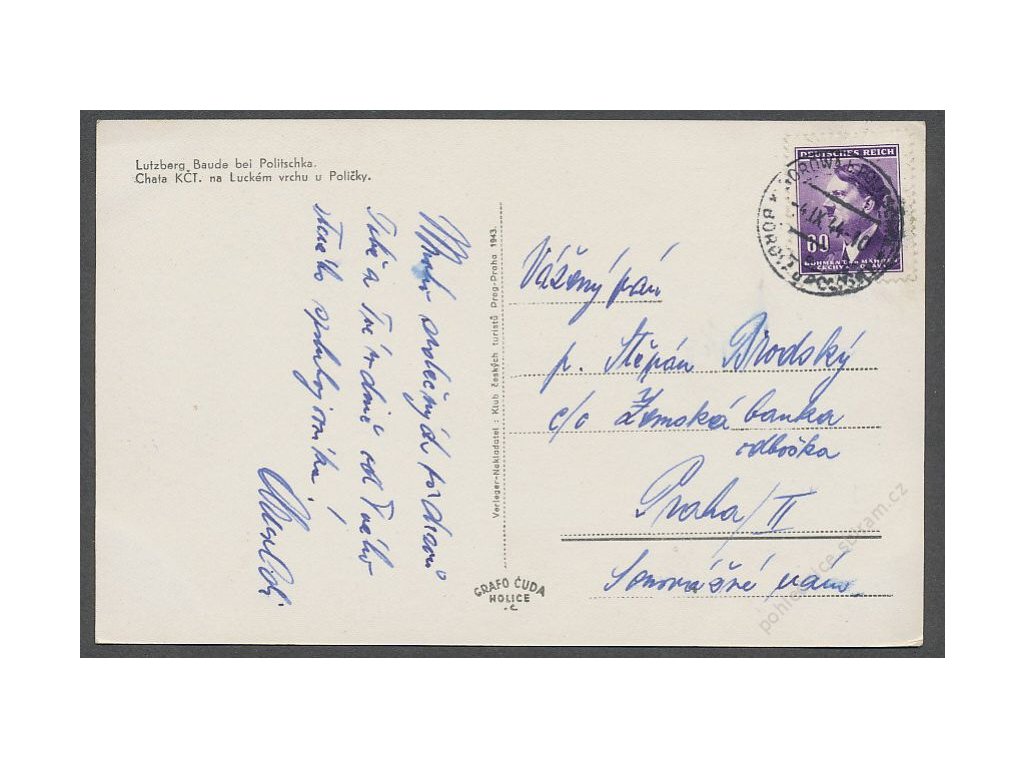 Lutzberg Baude bei Politschka.
Chata KČT. na Luckém vrchu u Poličky.
Mnoho srdečných pozdravů
Tobě a Tvé rodině od Tvého
starého
Verleger-Nakladatel: Klub českých turistů Prag-Praha 1943.
GRAFO ČUDA
HOLICE
DEUTSCHES REICH
60
BÖHMEN UND MÄHREN
ČECHY A MORAVA
4.IX.44-10
Vážený pán
p. Štěpán Brodský
c/o Zemská banka
odbočka
Praha/II
pohlednice.sberam.cz